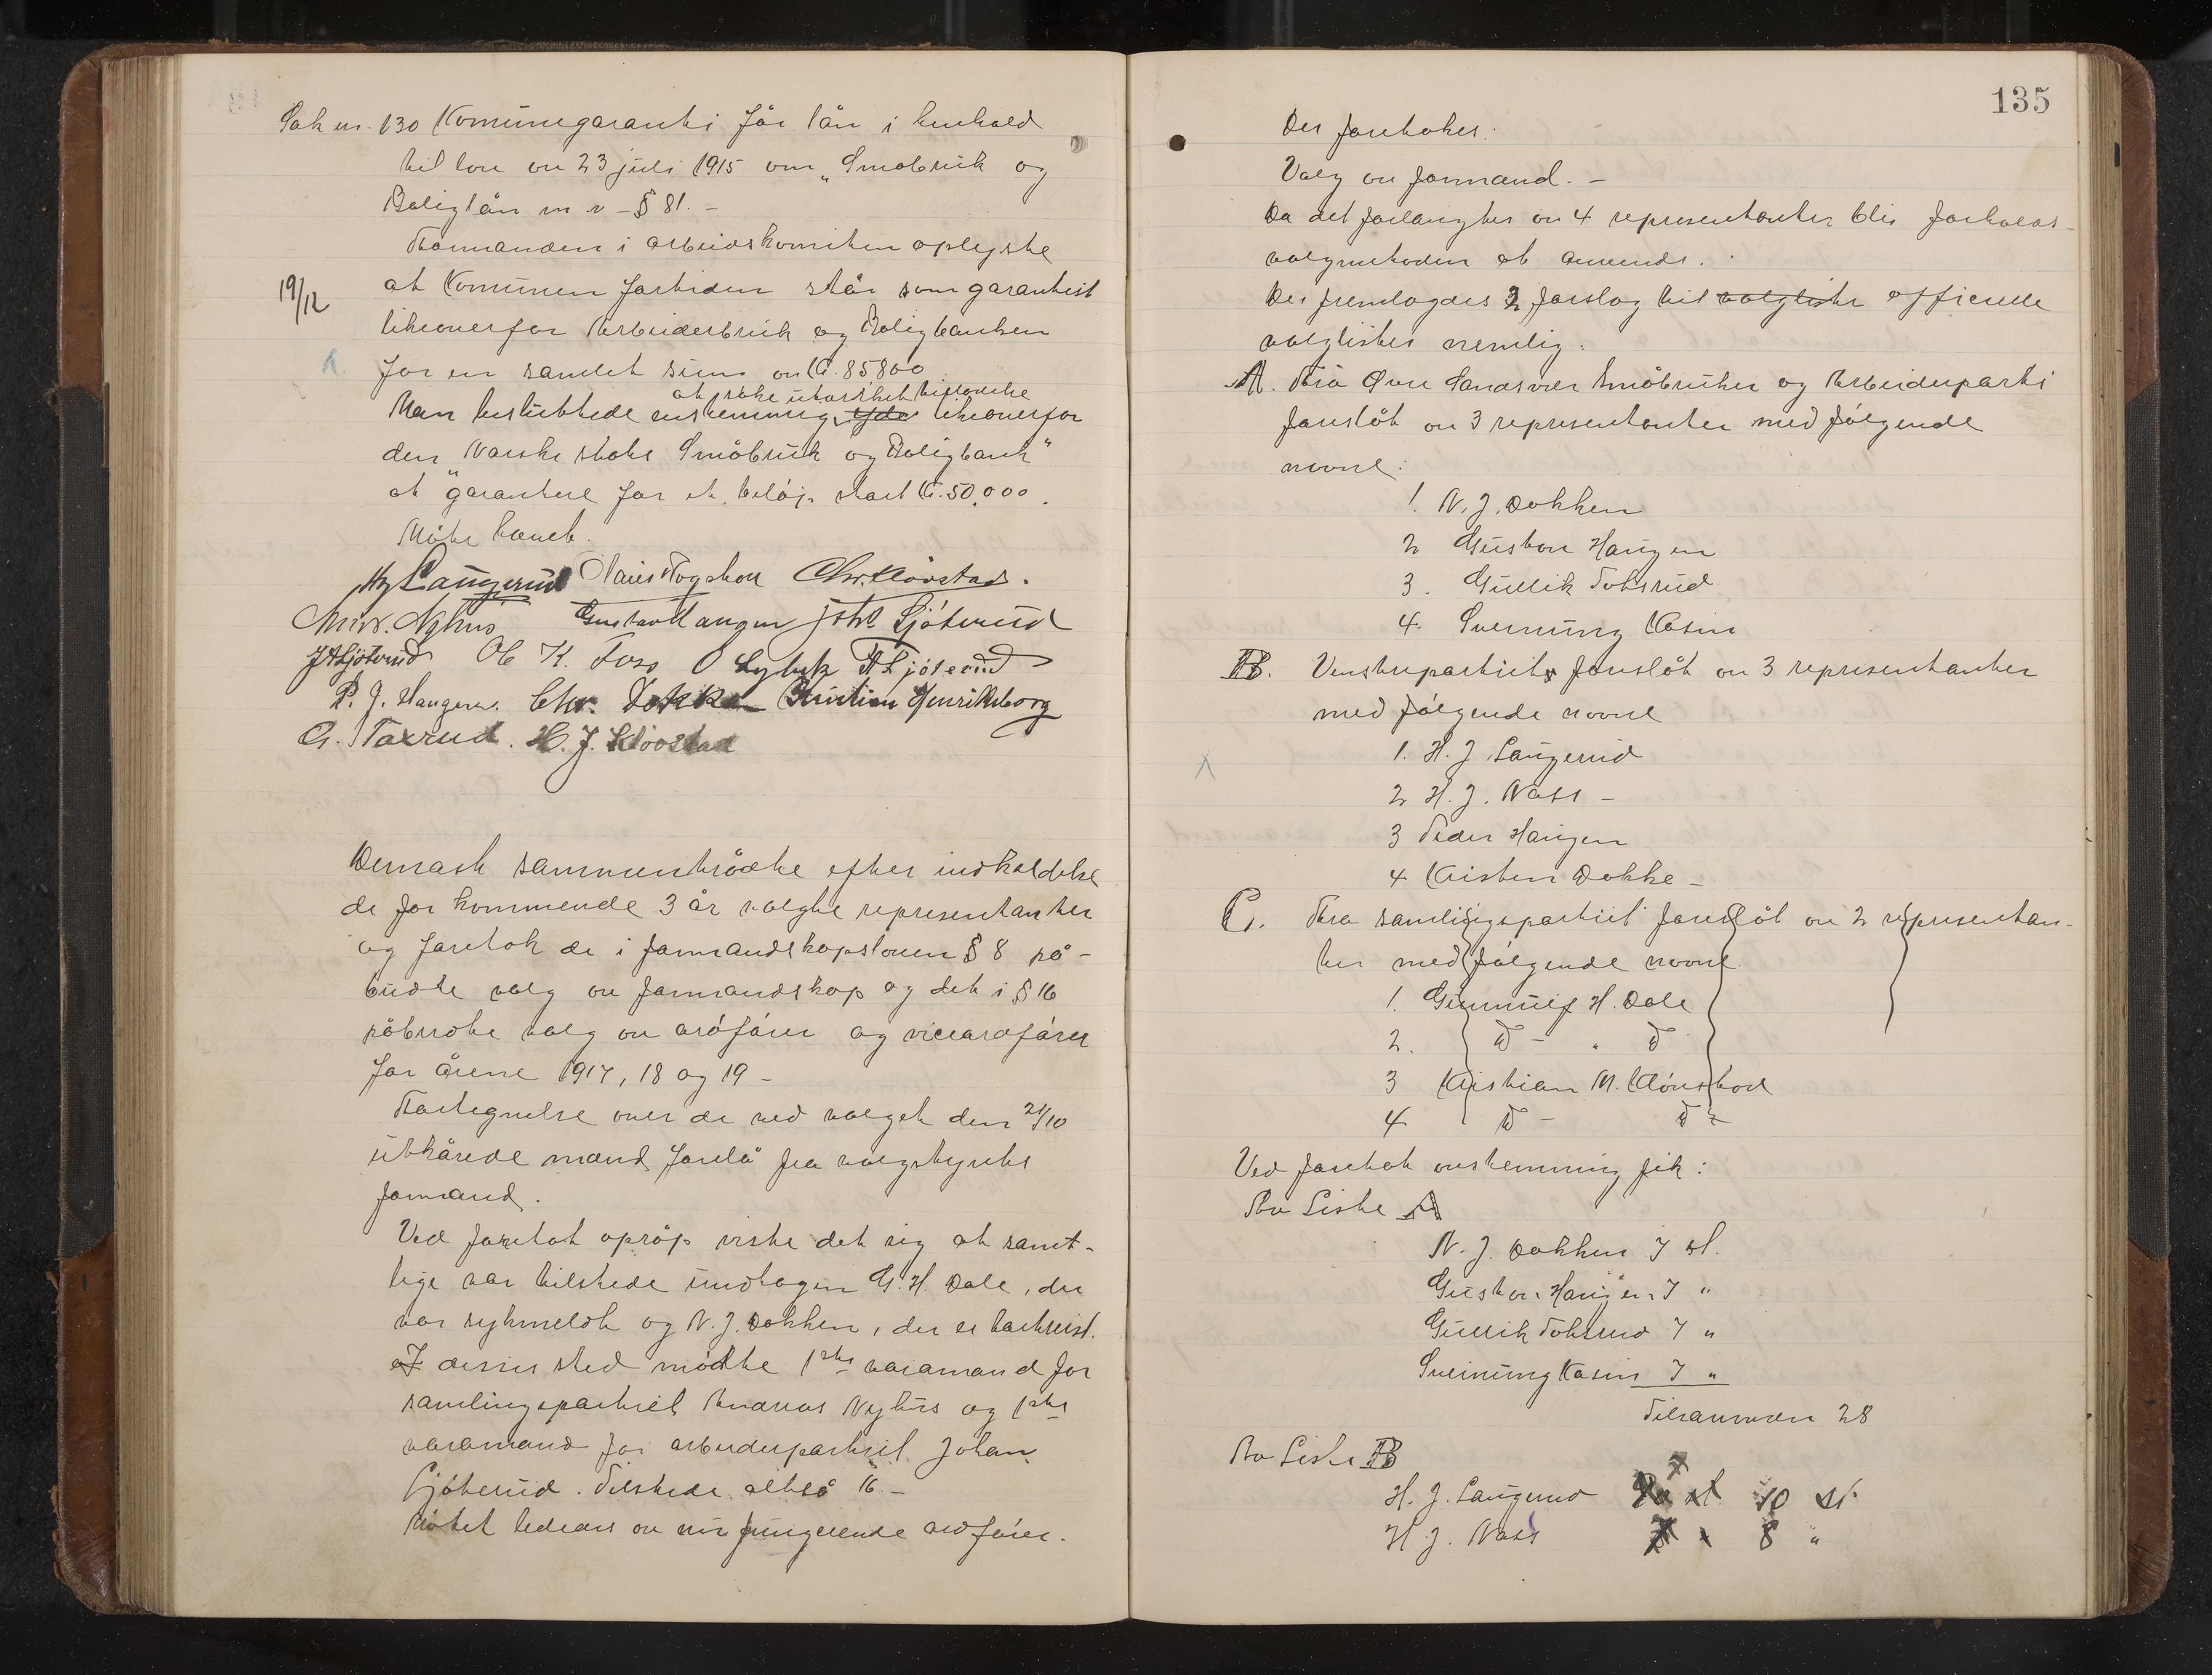 Sak nr. 130 Komunegaranti for lån i henhold
til lov av 23 juli 1915 om „Småbruk og
Boliglån m. v - § 81. -
Formanden i arbeidskomiten oplyste
19/12
at Komunen fortiden står som garantist
likeoverfor Arbeiderbruk og Boligbanken
for en samlet sum av Kr. 85800
at søke utvirket tilladelse
Man besluttede enstemmig likeoverfor
den Norske stats Småbruk og Boligbank"
at garantere for et beløp stort Kr. 50,000.
Møte hævet.
Hg Langerud Olaus Fogstad Chr. Kløvstad.
Andr. Nyhus Gustav Haugen Joh. Ljøterud
J A Ljøterud Ole K. Foss O Lybek A Ljøterud
P. J. Haugen. Chr. Dokken Kristian Henriksborg
G. Taxrud. H. J. Kløvstad
Dernæst sammentrådte efter indkaldelse
de for kommende 3 år valgte representanter
og foretok de i formandskapsloven § 8 på-
budte valg av formandskap og det i § 16
påbudte valg av ordfører og viceordfører
for årene 1917, 18 og 19 -
Fortegnelse over de ved valget den 21/10
utkårede mænd forelå fra valgstyrets
formand.
Ved foretat oprop viste det sig at samt-
lige var tilstede undtagen G. H. Dale, der
var sykmeldt og N. J. Dokken, der er bortreist.
I disses sted mødte 1ste varamand for
samlingspartiet Andreas Nyhus og 1ste
varamand for arbeiderpartiet Johan
Ljøterud. Tilstede altså 16 -
Møtet lededes av nu fungerende ordfører.
135
Der foretokes:
Valg av formand. -
Da det forlangtes av 4 representanter blir forholds-
valgmetoden at anvende.
Der fremlagdes 2 forslag til valgliste officielle
valglister nemlig:
A. Fra Øvre Sandsvær Småbruker og Arbeiderparti
foreslåt av 3 representanter med følgende
navne:
1. N. J. Dokken
2 Gustav Haugen
3. Gullik Tohsrud
4. Sveinung Kasin
B. Venstrepartiet foreslåt av 3 representanter
med følgende navne
1. H. J. Langerud
2 H. J. Nass -
3 Peder Haugen
4 Kristen Dokke -
C. Fra samlingspartiet foreslåt av 2 representan-
ter med følgende navne
1. Gunnulf H. Dale
2. D - " D
3 Kristian M. Kløvstad
4 D - D -
Ved foretat avstemning fik:
Av Liste A
N. J. Dokken 7 st.
Gustav Haugen 7 "
Gullik Tohsrud 7 "
Sveinung Kasin 7 "
Tilsammen 28
Av Liste B
H. J. Langerud 10 st.
H J. Nass 8 "